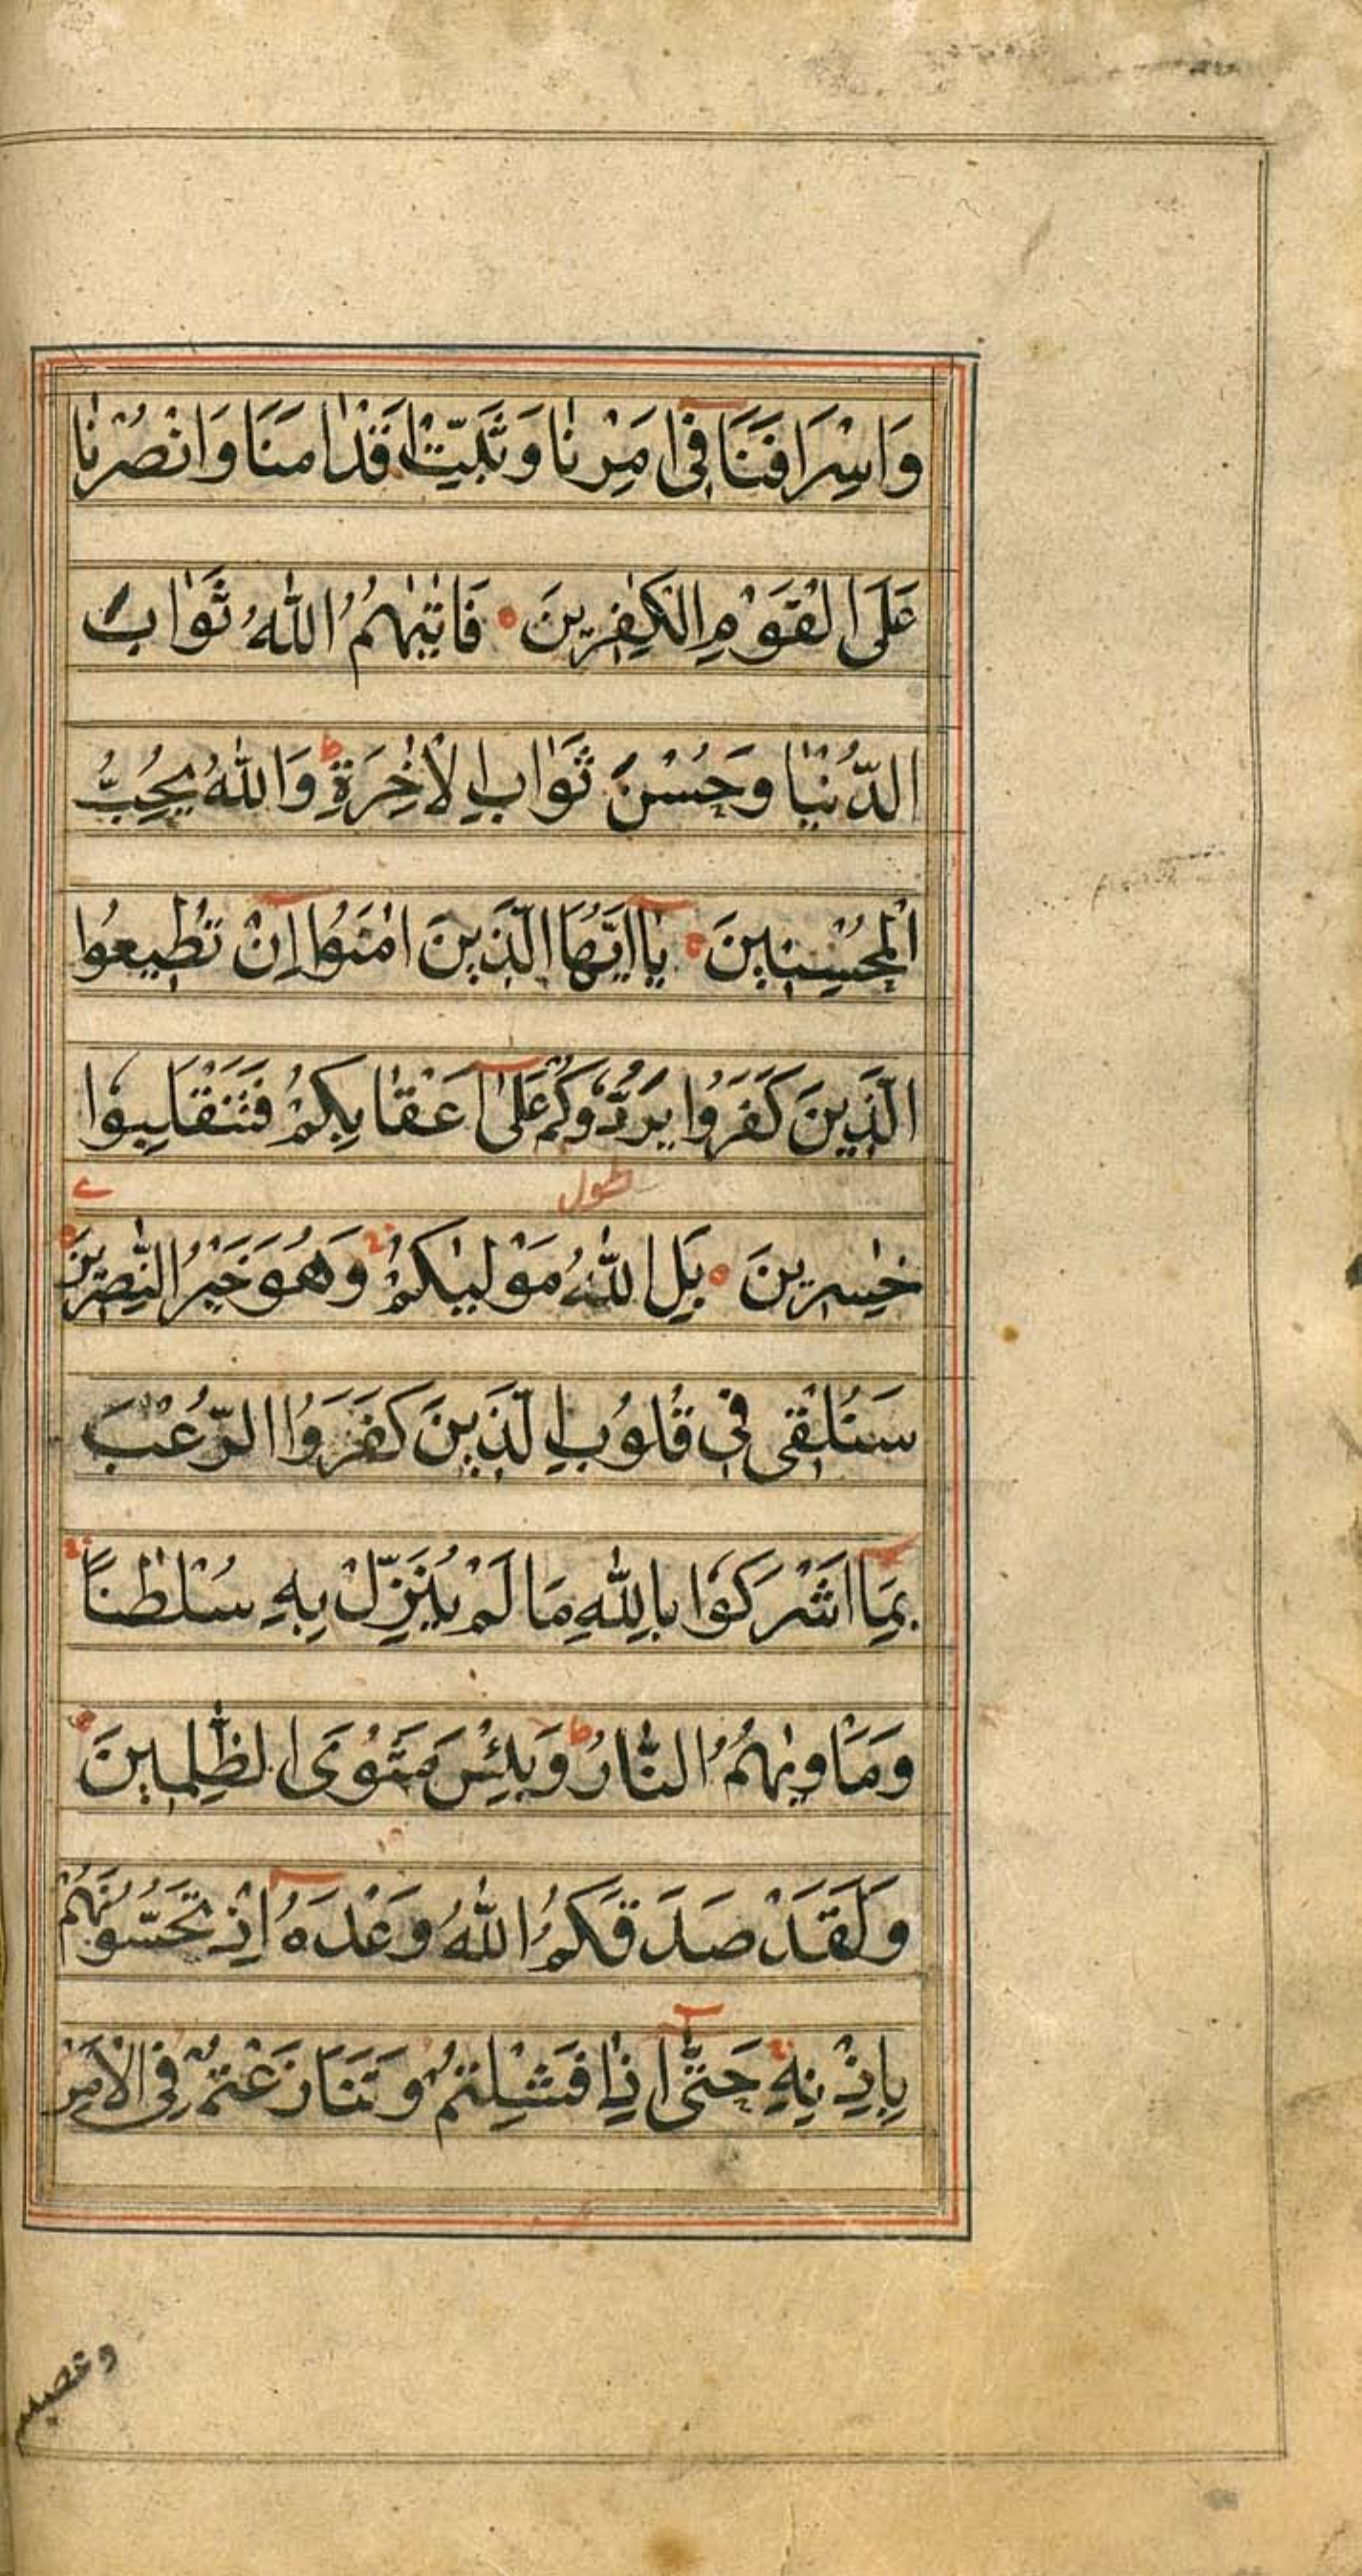 وَاِسْرَافَنَا فِیْ اَمْرِنَا وَثَبِّتْ اَقْدَامَنَا وَانْصُرْنَا
عَلَی الْقَوْمِ الْکٰفِرِیْنَ فَاٰتٰىهُمُ اللّٰهُ ثَوَابَ
الدُّنْیَا وَحُسْنَ ثَوَابِ الْاٰخِرَةِ ط وَاللّٰهُ یُحِبُّ
الْمُحْسِنِیْنَ یٰاَیُّهَا الَّذِیْنَ اٰمَنُوْا اِنْ تُطِیْعُوا
الَّذِیْنَ کَفَرُوْا یَرُدُّوْکُمْ عَلٰی اَعْقَابِکُمْ فَتَنْقَلِبُوْا
طول
خٰسِرِیْنَ بَلِ اللّٰهُ مَوْلٰىکُمْ ج وَهُوَ خَیْرُ النّٰصِرِیْنَ
سَنُلْقِیْ فِیْ قُلُوْبِ الَّذِیْنَ کَفَرُوا الرُّعْبَ
بِمَا اَشْرَکُوْا بِاللّٰهِ مَا لَمْ یُنَزِّلْ بِهٖ سُلْطٰنًا ج
وَمَاْوٰىهُمُ النَّارُ ط وَبِئْسَ مَثْوَی الظّٰلِمِیْنَ
وَلَقَدْ صَدَقَکُمُ اللّٰهُ وَعْدَهٗ اِذْ تَحُسُّوْنَهُمْ
بِاِذْنِهٖ ج حَتّٰی اِذَا فَشِلْتُمْ وَتَنَازَعْتُمْ فِی الْاَمْرِ
وعصیتم